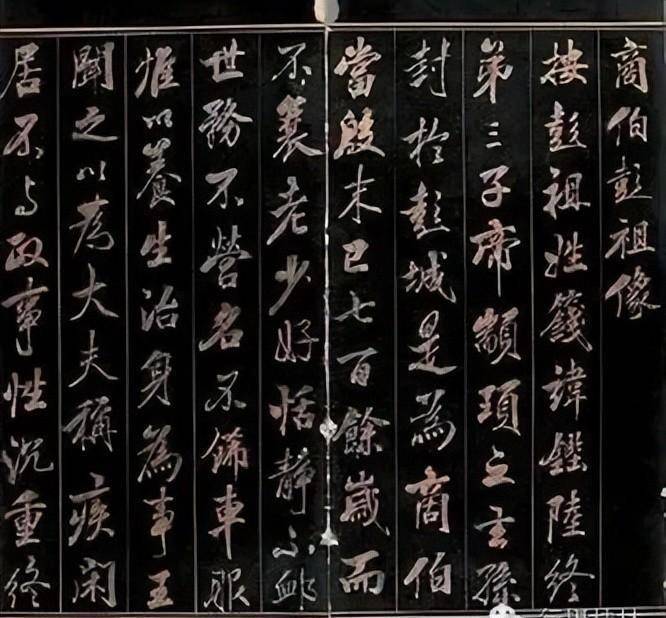 商伯彭祖像
按彭祖姓籛諱鏗陸終
第三子帝顓頊之玄孫
封於彭城是為商伯
當殷末已七百餘歲而
不衰老少好恬靜不卹
世務不營名不飾車服
惟以養生治身為事王
聞之以為大夫稱疾閑
居不与政事性沉重終